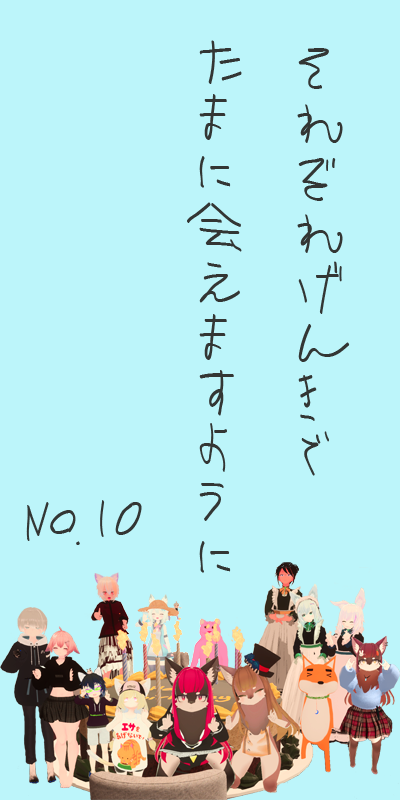 それぞれげんきで
たまに会えますように
NO.10
エサを
あげないで!